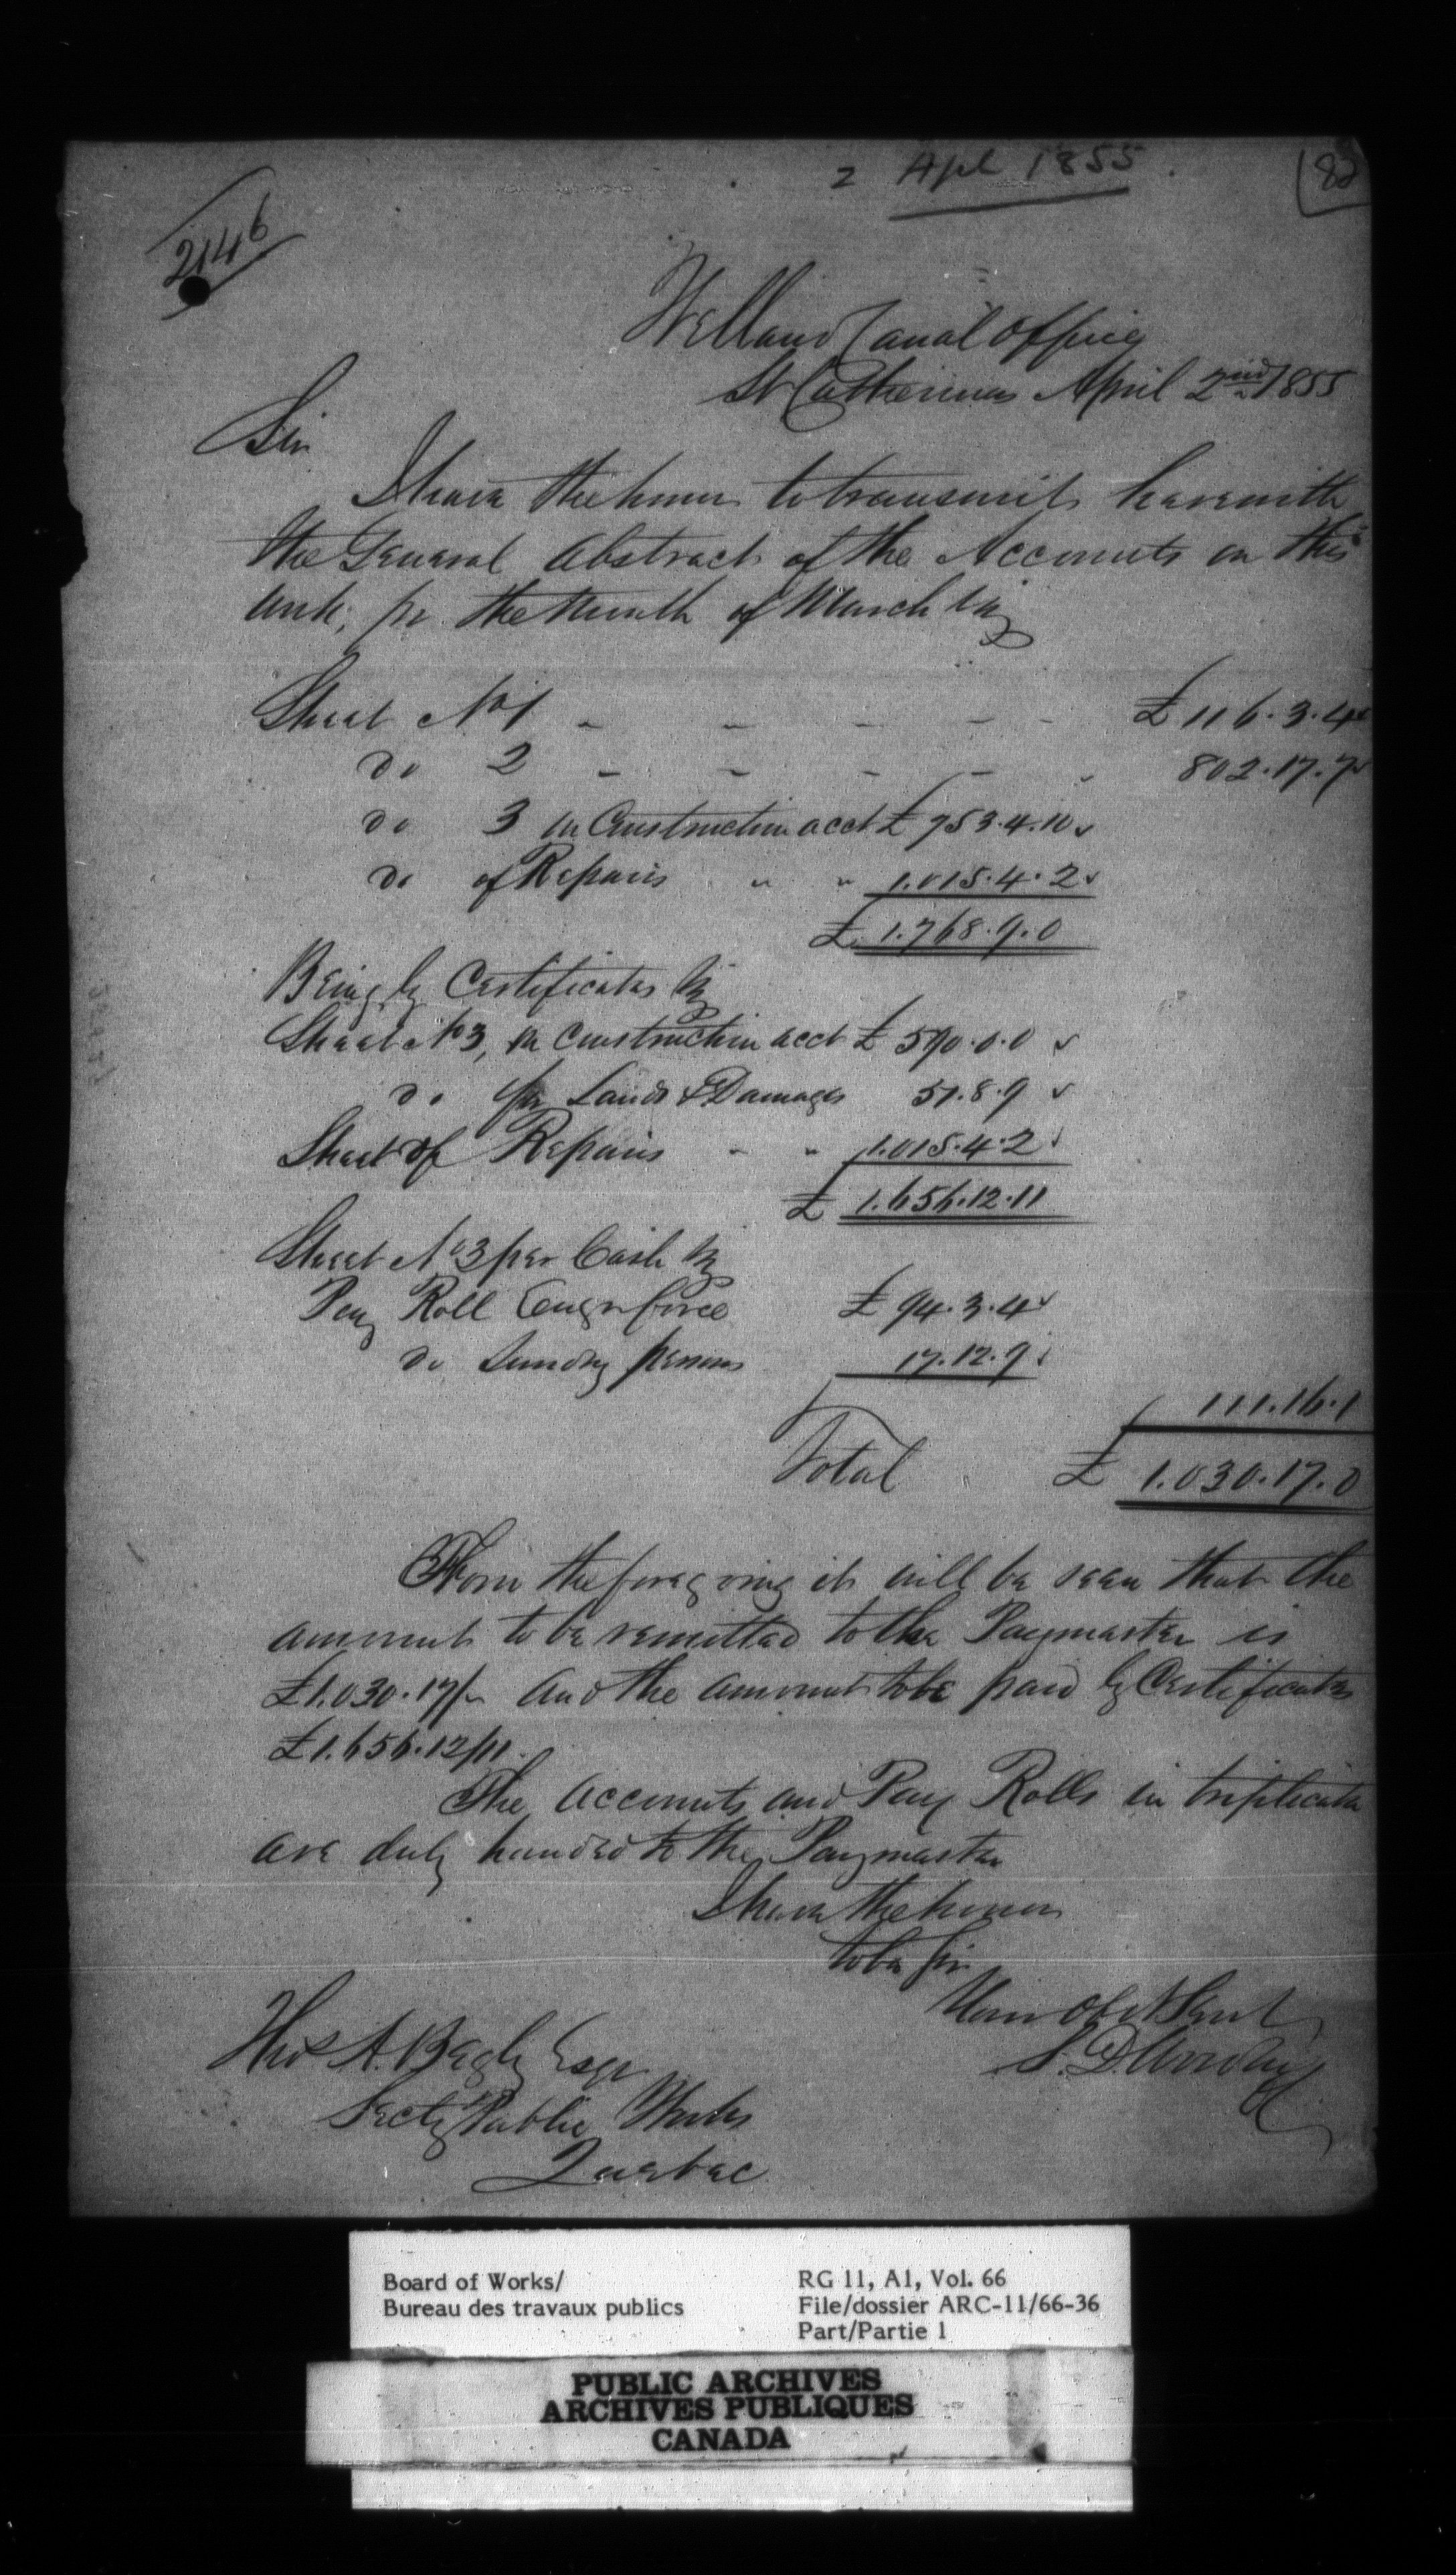 2 Apl 1855
82
2146
Welland Canal Office
St Catherines April 2nd 1855
Sir
I have the honor to transmit herewith
the General Abstract of the Accounts on this
Work, for the Month of March Viz
Sheet No 1 - - - - - £ 116.3.4
Do 2 - - - - - 802.17.7
Do 3 on Construction acct £ 753.4.10
Do of Repairs " " 1.015.4.2
£ 1.768.9.0
Being by Certificates Viz
Sheet No 3, on Construction acct £ 590.0.0
Do for Lands & Damages 51.8.9
Sheet of Repairs - " 1.015.4.2
£ 1.656.12.11
Sheet No 3 per Cash Viz
Pay Roll Engr force £ 94.3.4
Do Sundry persons 17.12.9
111.16.1
Total £ 1.030.17.0
From the foregoing it will be seen that the
amount to be remitted to the Paymaster is
£1.030.17/- and the amount to be paid by Certificates
£1.656.12/11.
The Accounts and Pay Rolls in triplicate
are duly handed to the Paymaster
I have the honor
to be Sir
Your Obt Servt
S. D. Woodruff
Thos A. Begly Esqr
Secty Public Works
Quebec
Board of Works/
Bureau des travaux publics
RG 11, A1, Vol. 66
File/dossier ARC-11/66-36
Part/Partie 1
PUBLIC ARCHIVES
ARCHIVES PUBLIQUES
CANADA